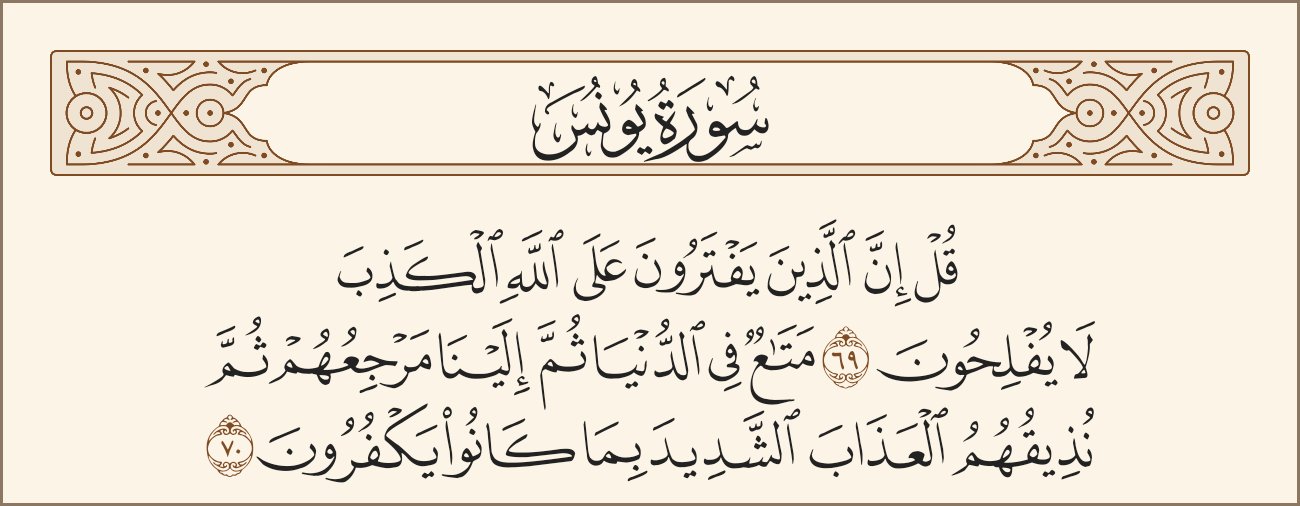 سُورَةُ يُونُسَ
قُلْ إِنَّ ٱلَّذِينَ يَفْتَرُونَ عَلَى ٱللَّهِ ٱلْكَذِبَ
لَا يُفْلِحُونَ ٦٩ مَتَـٰعٌ فِى ٱلدُّنْيَا ثُمَّ إِلَيْنَا مَرْجِعُهُمْ ثُمَّ
نُذِيقُهُمُ ٱلْعَذَابَ ٱلشَّدِيدَ بِمَا كَانُوا۟ يَكْفُرُونَ ٧٠